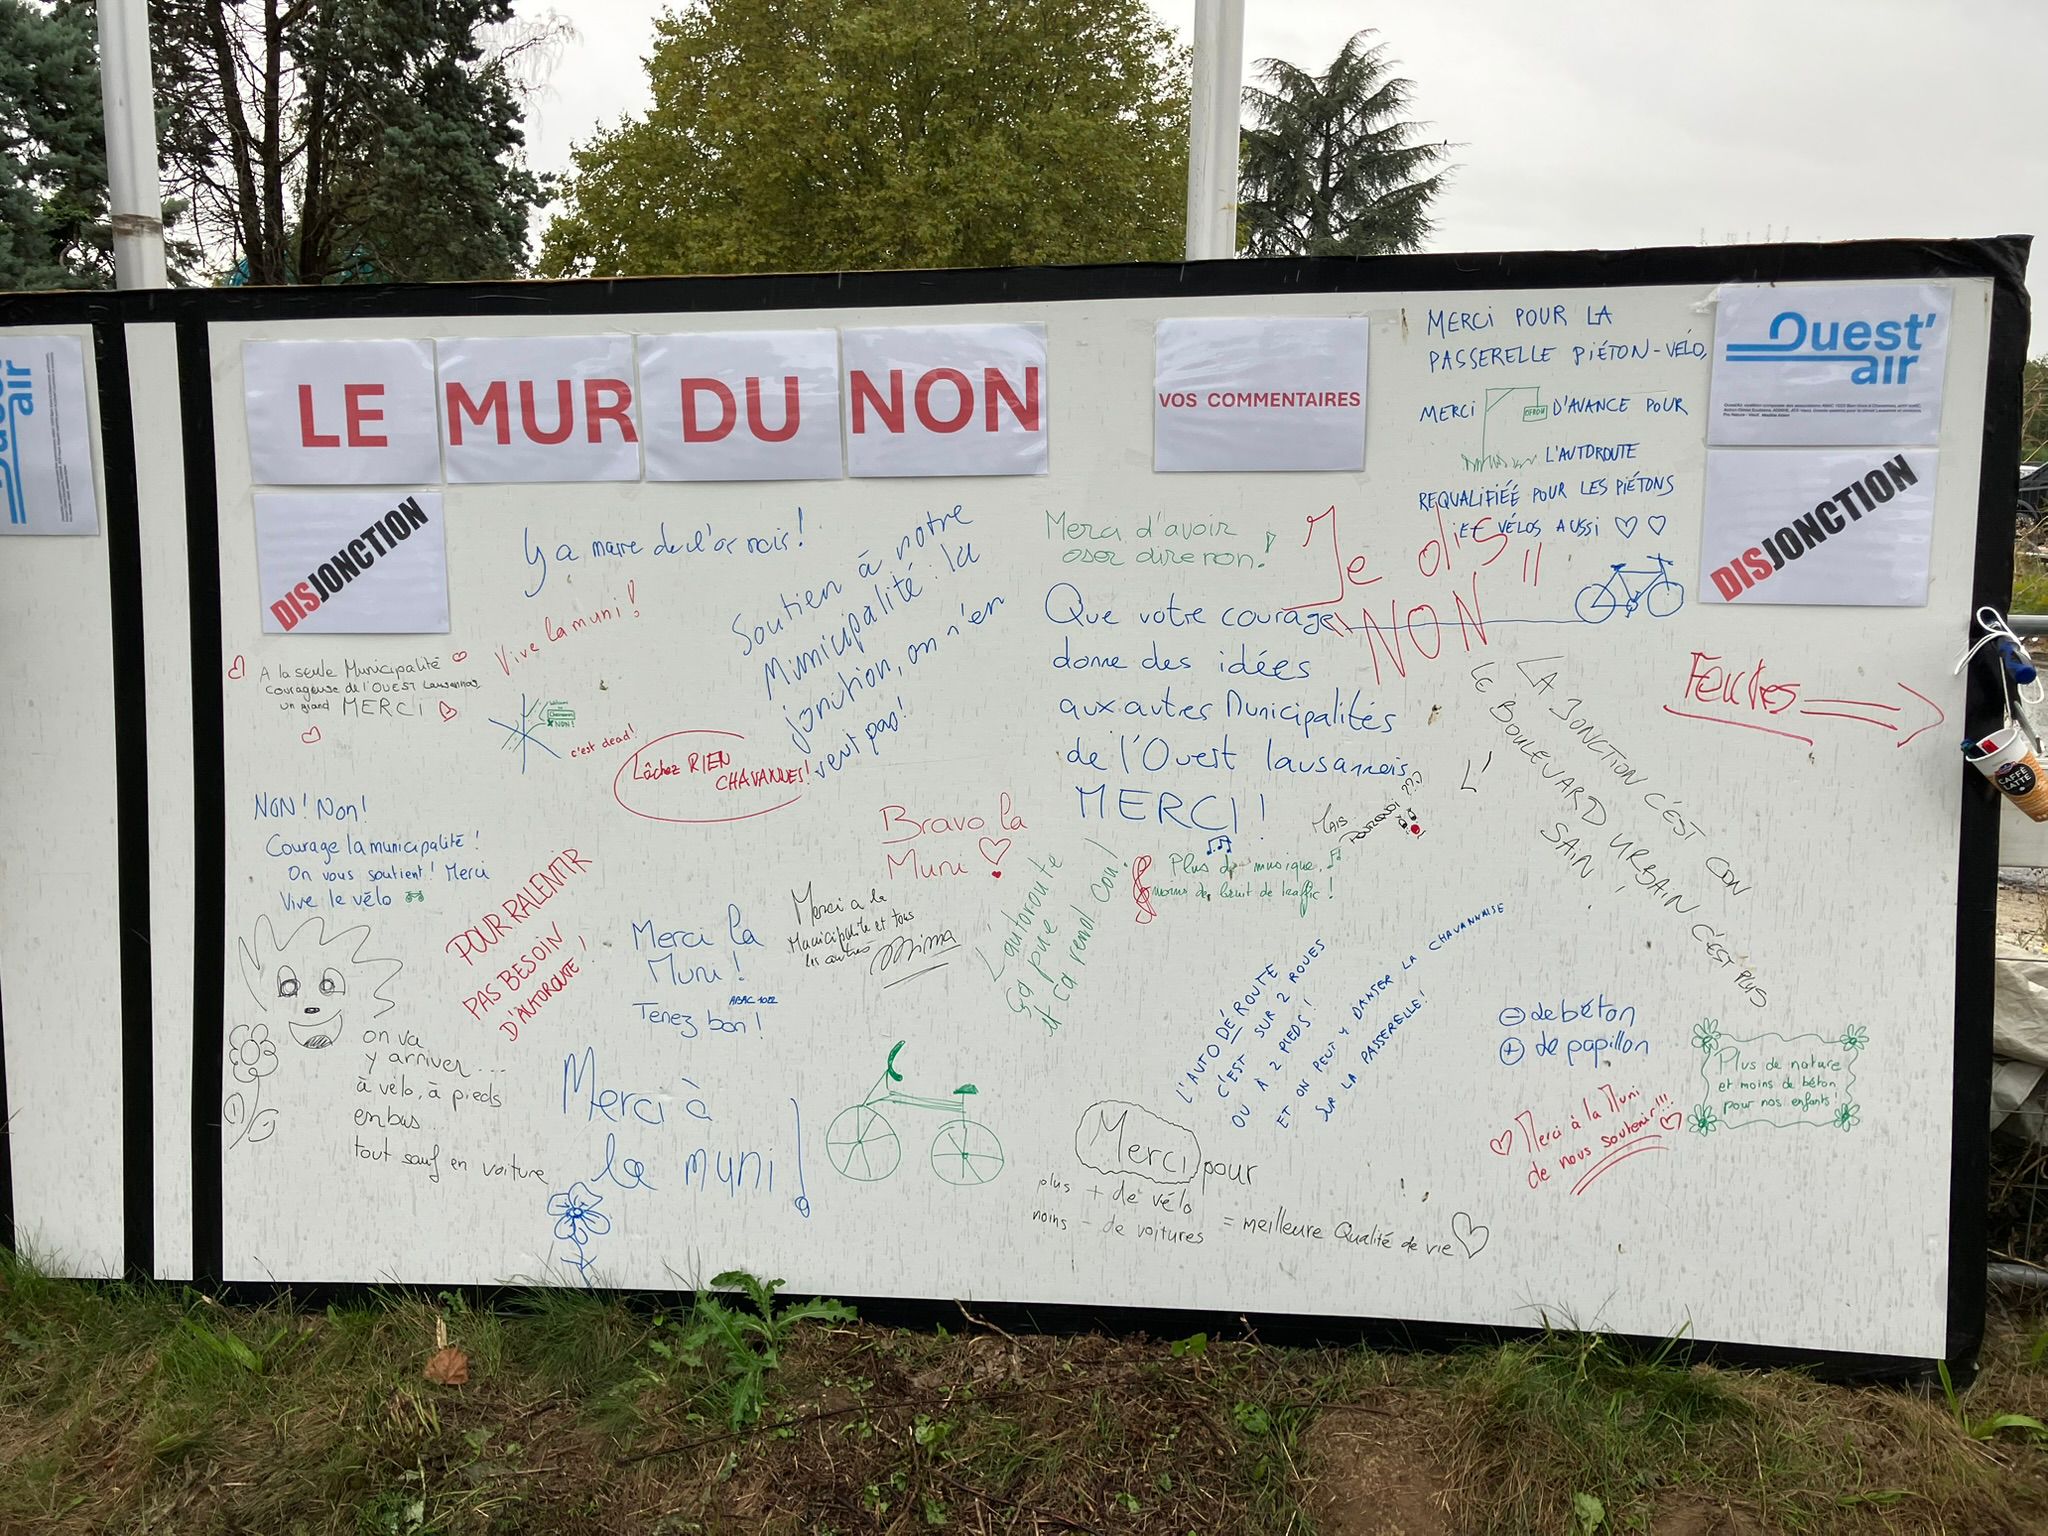 LE MUR DU NON
VOS COMMENTAIRES
Ouest'
air
DISJONCTION
DISJONCTION
air
MERCI POUR LA
PASSERELLE PIÉTON-VÉLO,
MERCI OFROU D'AVANCE POUR
L'AUTOROUTE
REQUALIFIÉE POUR LES PIÉTONS
ET VÉLOS AUSSI
Y a marre de l'or noir!
Vive la muni!
A la seule Municipalité
courageuse de l'OUEST Lausannois,
un grand MERCI
NON!
c'est dead!
Soutien à notre
Municipalité: la
jonction, on n'en
veut pas!
Lâchez RIEN
CHAVANNES!
Merci d'avoir
oser dire non!
Je dis
NON !!
Que votre courage
donne des idées
aux autres Municipalités
de l'Ouest lausannois
MERCI!
Feutres
LA JONCTION C'EST CON
LE BOULEVARD URBAIN C'EST PLUS
SAIN!
L'
MAIS
POURQUOI ???
NON! Non!
Courage la municipalité!
On vous soutient! Merci
Vive le vélo
POUR RALENTIR
PAS BESOIN
D'AUTOROUTE!
Bravo la
Muni
Merci la
Muni!
ABAC 1022
Tenez bon!
Merci a la
Municipalité et tous
les autres
L'autoroute
ça pue
et ça rend con!
Plus de musique,
moins de bruit de traffic!
L'AUTODÉROUTE
C'EST SUR 2 ROUES
OU À 2 PIEDS!
ET ON PEUT Y DANSER LA CHAVANNAISE
SUR LA PASSERELLE!
- de béton
+ de papillon
Plus de nature
et moins de béton
pour nos enfants!
Merci à la Muni
de nous soutenir!!!
on va
y arriver...
à vélo, à pieds
en bus
tout sauf en voiture
Merci à
la muni!
Merci pour
plus + de vélo
moins - de voitures = meilleure Qualité de vie